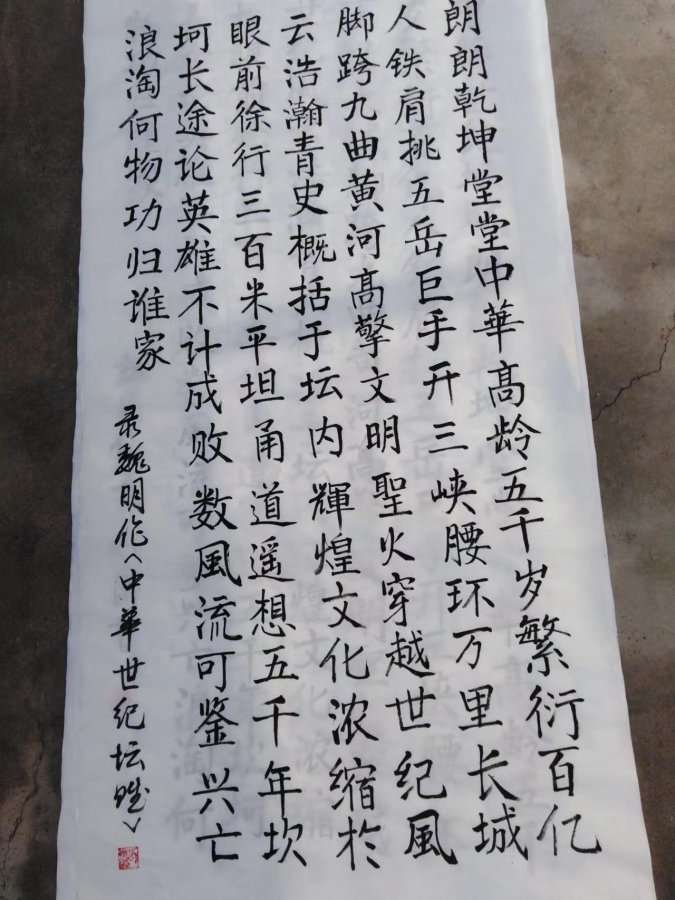 朗朗乾坤堂堂中華高龄五千岁繁衍百亿
人铁肩挑五岳巨手开三峡腰环万里长城
脚跨九曲黄河高擎文明聖火穿越世纪風
云浩瀚青史概括于坛内輝煌文化浓缩於
眼前徐行三百米平坦甬道遥想五千年坎
坷长途论英雄不计成败数風流可鉴兴亡
浪淘何物功归谁家
录魏明作《中華世纪坛赋》